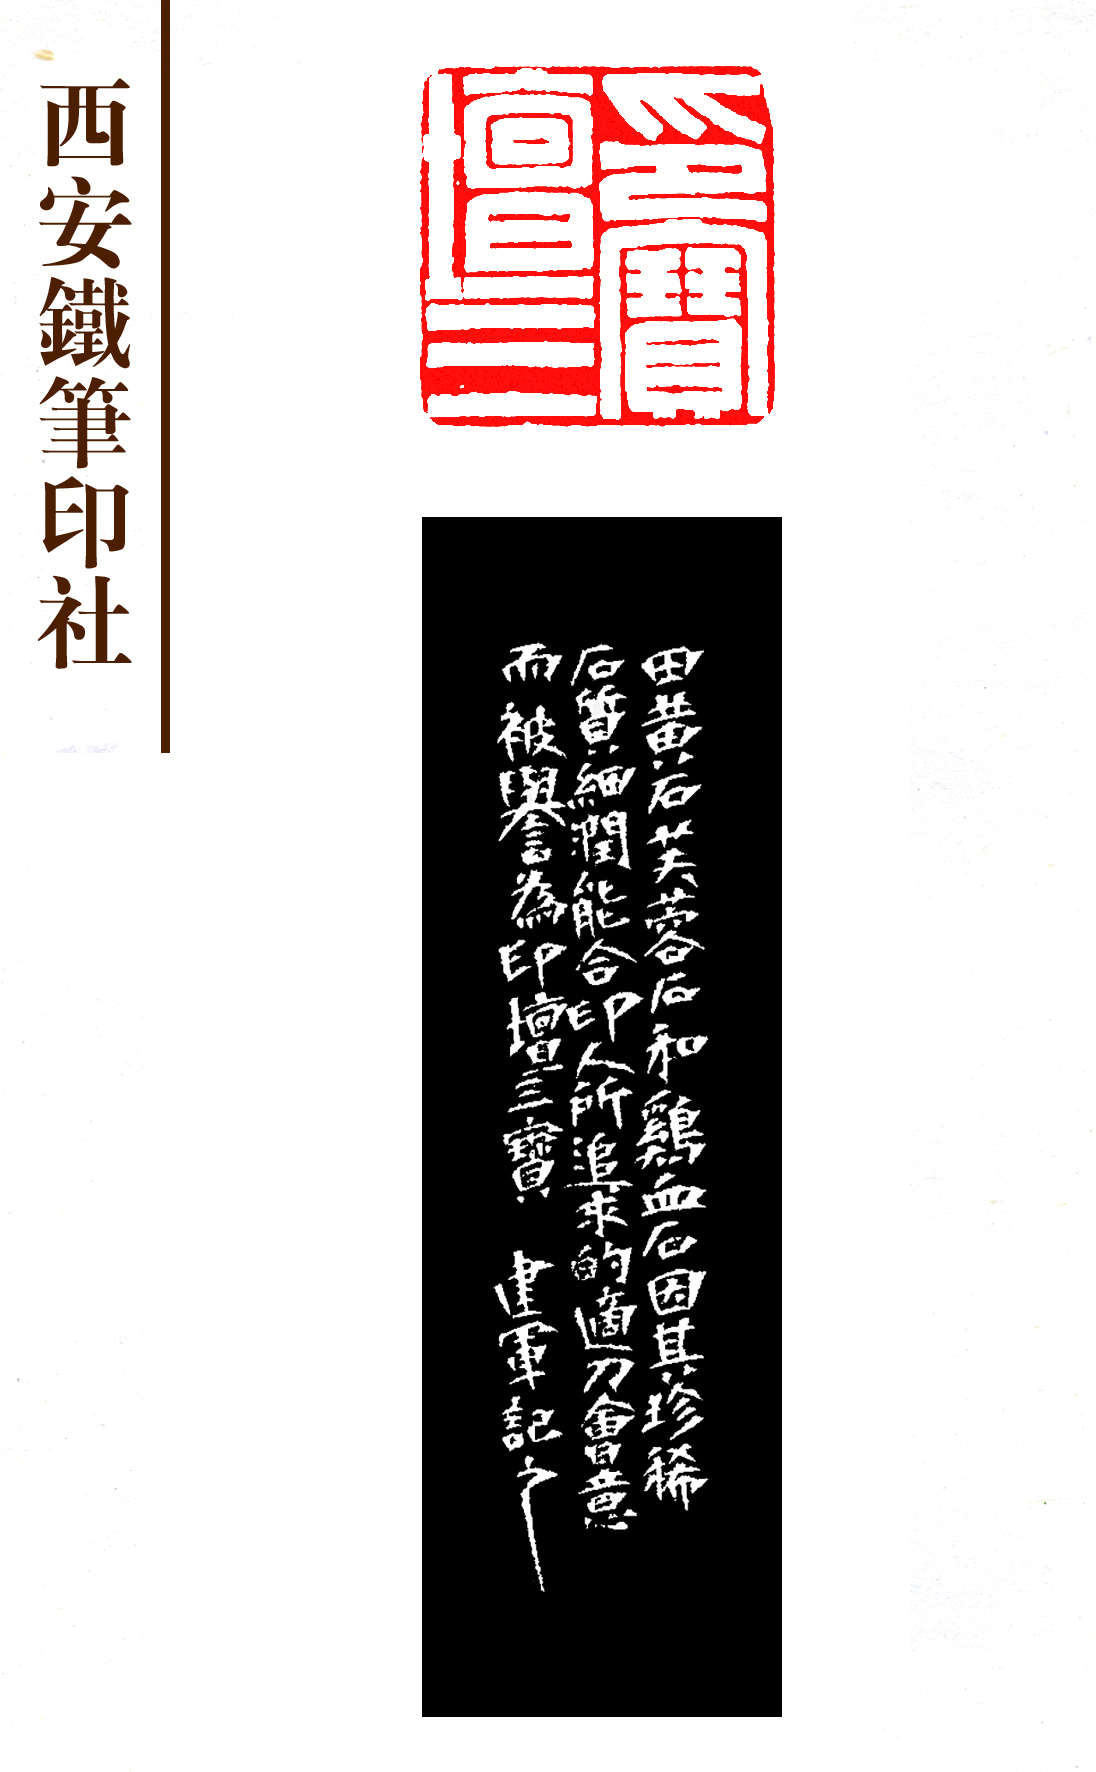 西安鐵筆印社
印壇三寶
田黄石芙蓉石和鷄血石因其珍稀
石質細潤能合印人所追求的適刀會意
而被譽為印壇三寶 建軍記之